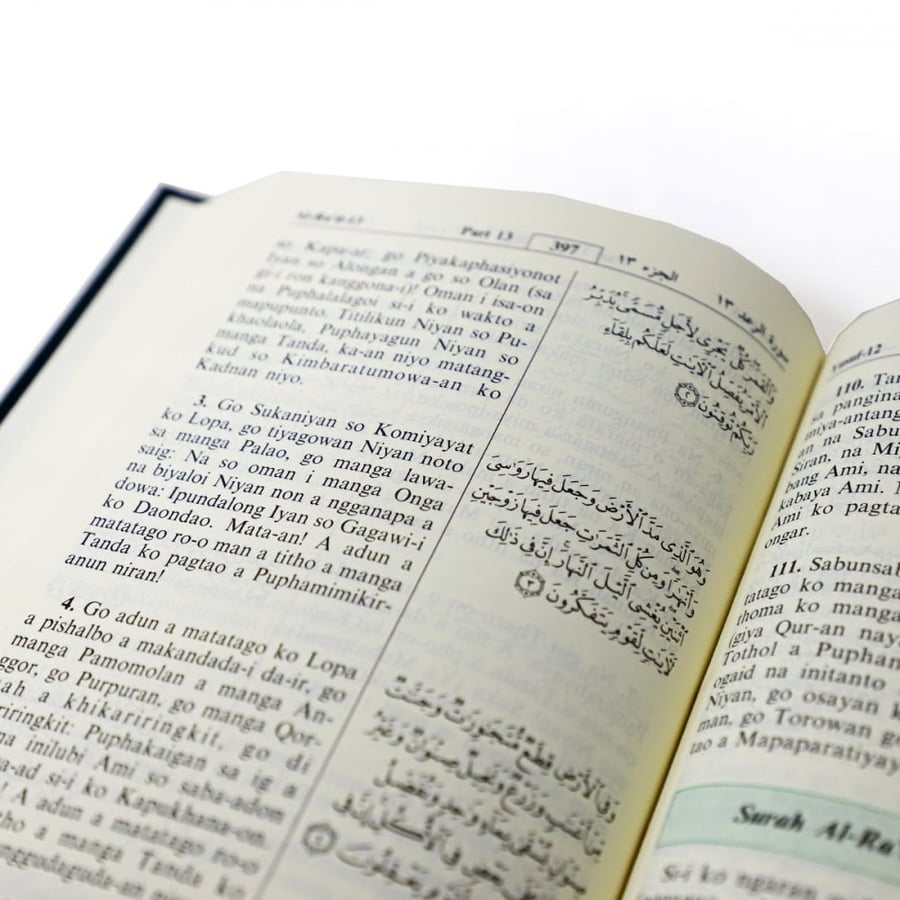 Part 13
397
الجزء ١٣
سورة الرعد ١٣
so Kapa-ar; go Piyakaphasiyonot
Iyan so Alongan a go so Olan (sa
gi-i ron kanggona-i)! Oman i isa-on
na Puphalalagoi si-i ko wakto a
mapupunto. Titilikun Niyan so Pu-
khaolaola, Puphayagun Niyan so
manga Tanda, ka-an niyo matang-
kud so Kimbaratumowa-an ko
Kadnan niyo.
3. Go Sukaniyan so Komiyayat
ko Lopa, go tiyagowan Niyan noto
sa manga Palao, go manga lawa-
saig: Na so oman i manga Onga
na biyaloi Niyan non a ngganapa a
dowa: Ipundalong Iyan so Gagawi-i
ko Daondao. Mata-an! A adun a
matatago ro-o man a titho a manga
Tanda ko pagtao a Puphamimikir-
anun niran!
4. Go adun a matatago ko Lopa
a pishalbo a makandada-i da-ir, go
manga Pamomolan a manga An-
ggor, go Purpuran, go manga Qor-
ah a khikariringkit, go di
riringkit: Puphakaigan sa ig a
na inilubi Ami so saba-adon
a-ad si-i ko Kapukhana-on.
! A adun a matatago ro-o
tho a manga Tanda ko
nggudaguda-an ni
وَٱلْقَمَرَ كُلٌّ يَجْرِى لِأَجَلٍ مُّسَمًّى يُدَبِّرُ
ٱلْأَمْرَ يُفَصِّلُ ٱلْآيَٰتِ لَعَلَّكُم بِلِقَآءِ
رَبِّكُمْ تُوقِنُونَ ٢
وَهُوَ ٱلَّذِى مَدَّ ٱلْأَرْضَ وَجَعَلَ فِيهَا رَوَٰسِىَ
وَأَنْهَٰرًا وَمِن كُلِّ ٱلثَّمَرَٰتِ جَعَلَ فِيهَا زَوْجَيْنِ
ٱثْنَيْنِ يُغْشِى ٱلَّيْلَ ٱلنَّهَارَ إِنَّ فِى ذَٰلِكَ
لَءَايَٰتٍ لِّقَوْمٍ يَتَفَكَّرُونَ ٣
وَفِى ٱلْأَرْضِ قِطَعٌ مُّتَجَٰوِرَٰتٌ وَجَنَّٰتٌ
مِّنْ أَعْنَٰبٍ وَزَرْعٌ وَنَخِيلٌ صِنْوَانٌ وَغَيْرُ
صِنْوَانٍ يُسْقَىٰ بِمَآءٍ وَٰحِدٍ وَنُفَضِّلُ
Yusuf-12
110. Tan
sa pagina
miya-antang
an na Sabu
Siran, na Mi
bang Ami, na
kabaya Ami. 
Ami ko pagta
ongar.
111. Sabunsab
tatago ko manga
thoma ko manga
(giya Qur-an nay
Tothol a Puphan
ogaid na initanto
Niyan, go osayan k
man, go Torowan go
tao a Mapaparatiyay
Surah Al-Ra'
Si-i ko ngaran